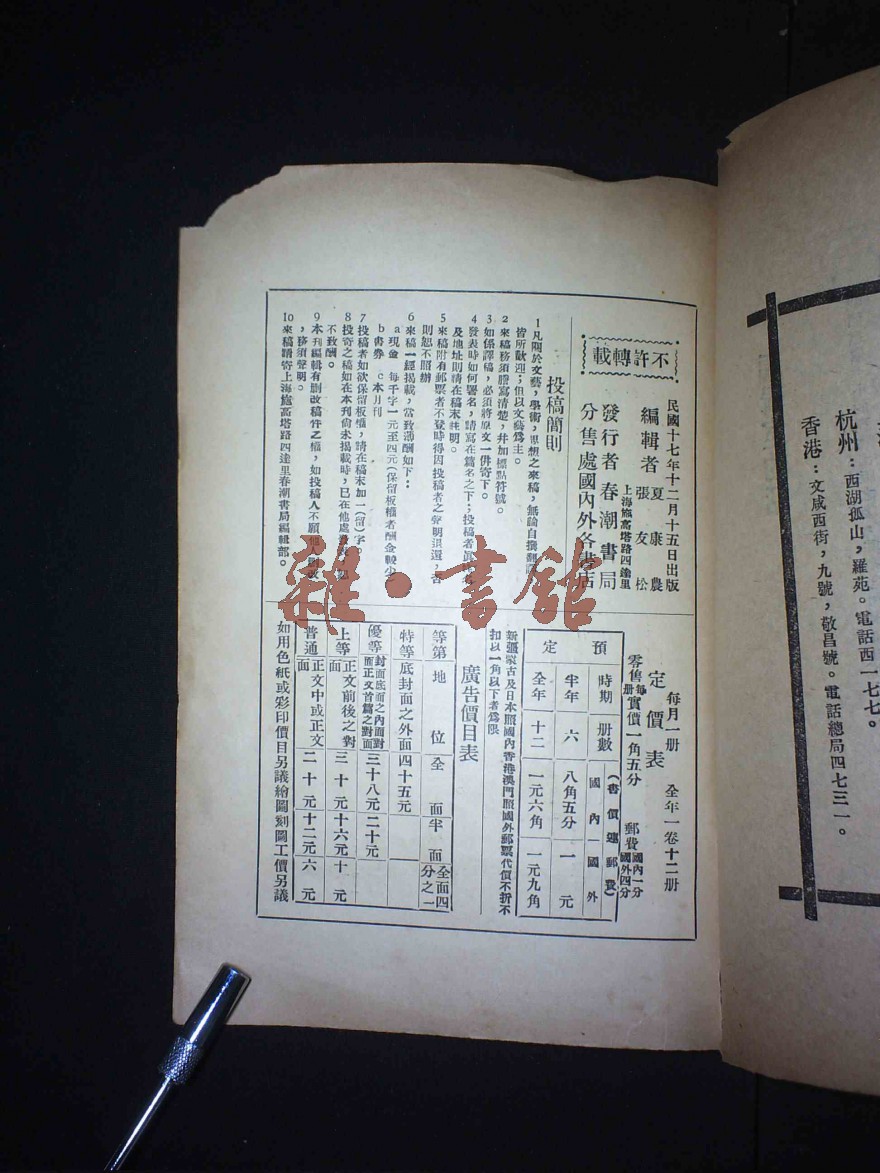 不許轉載
民國十七年十二月十五日出版
編輯者 夏康農
張友松
上海施高塔路四達里
發行者春潮書局
分售處國內外各書店
投稿簡則
1凡關於文藝,學術,思想之來稿,無論自撰翻譯
皆所歡迎;但以文藝爲主。
2來稿務須謄寫清楚,幷加標點符號。
3如係譯稿,必須將原文一併寄下。
4發表時如何署名,請寫在篇名之下;投稿者眞
及地址則請在稿末註明。
5來稿附有郵票者不登時得因投稿者之聲明退還,否
則恕不照辦
6來稿一經揭載,當致薄酬如下:
a現金 每千字一元至四元(保留板權者酬金較少
b書券 c本月刊
7投稿者如欲保留板權,請在稿末加一(留)字。
8投寄之稿如在本刊尙未揭載時,已在他處
不致酬。
9本刊編輯有刪改稿件之權,如投稿人不願他人刪改
,務須聲明。
10來稿請寄上海施高塔路四達里春潮書局編輯部。
每月一冊 全年一卷十二冊
定價表
零售每冊實價一角五分 郵費國內一分國外四分
預定
時期 冊數 (書價連郵費) 國內 國外
半年 六 八角五分 一元
全年 十二 一元六角 一元九角
新疆蒙古及日本照國內香港澳門照國外郵票代價不折不
扣以一角以下者爲限
廣告價目表
等第 地位 全面 半面 全面四分之一
特等 底封面之外面 四十五元
優等 封面底面之內面對面正文首篇之對面 三十八元 二十元
上等 正文前後之對面 三十元 十六元 十元
普通 正文中或正文面 二十元 十二元 六元
如用色紙或彩印價目另議繪圖刻圖工價另議
杭州:西湖孤山,羅苑。電話西一七七。
香港:文咸西街,九號,敬昌號。電話總局四七三一。
雜·書館